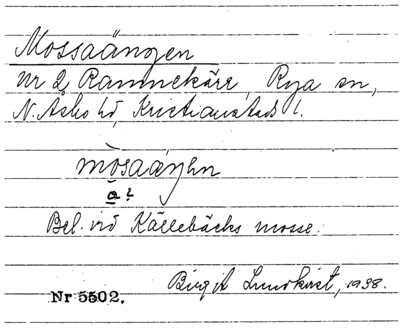 Mossaängen
Nr 2 Ramnekärr, Rya sn,
N. Åsbo hd, Kristianstads l.
mosaäŋen
a?
Bel. vid Källebäcks mosse.
Birgit Lundkvist, 1938.
Nr 5502.